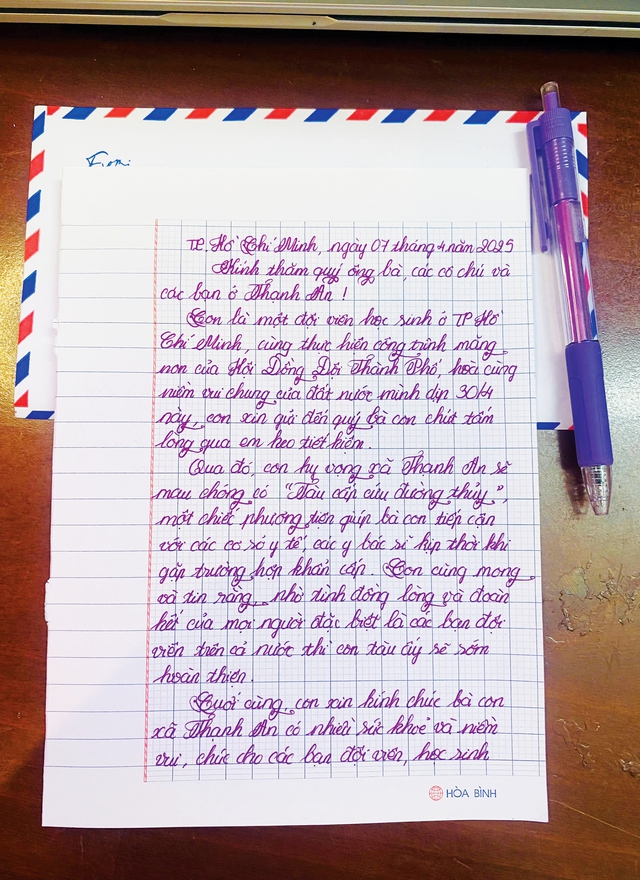 From:
TP. Hồ Chí Minh, ngày 07 tháng 4 năm 2025
Kính thăm quý ông bà, các cô chú và
các bạn ở Thạnh An !
Con là một đội viên học sinh ở TP Hồ
Chí Minh, cùng thực hiện công trình măng
non của Hội Đồng Đội Thành Phố, hoà cùng
niềm vui chung của đất nước mình dịp 30/4
này, con xin gửi đến quý bà con chút tấm
lòng qua em heo tiết kiệm.
Qua đó, con hy vọng xã Thạnh An sẽ
mau chóng có "Tàu cấp cứu đường thủy",
một chiếc phương tiện giúp bà con tiếp cận
với các cơ sở y tế, các y bác sĩ kịp thời khi
gặp trường hợp khẩn cấp. Con cũng mong
và tin rằng, nhờ tình đồng lòng và đoàn
kết của mọi người đặc biệt là các bạn đội
viên trên cả nước thì con tàu ấy sẽ sớm
hoàn thiện.
Cuối cùng, con xin kính chúc bà con
xã Thạnh An có nhiều sức khoẻ và niềm
vui, chúc cho các bạn đội viên, học sinh
HÒA BÌNH